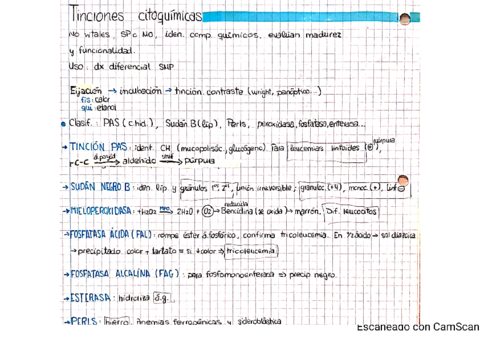 Tinciones citoquímicas
No vitales, SP o NO, iden. comp. químicos, evalúan madurez
y funcionalidad.
Uso: dx diferencial SMP
Fijación → incubación → tinción contraste (wright, panóptico...)
fis: calor
qui: etanol
Clasif.: PAS (c.hid.), Sudán B (lip), Perls, peroxidasa, fosfatasa, enterasa...
→ TINCIÓN PAS: ident. CH (mucopolisác, glucógeno) Para leucemias linfoides (+) púrpura
C-C → aldehído → púrpura
→ SUDÁN NEGRO B: iden. lip y gránulos 1º, 2º, unión irreversible; granuloc (+4), monoc (+), linf ⊖
→ MIELOPEROXIDASA: + H2O2 → 2H2O + O2 → Bencidina (se oxida) → marrón. Dif. leucocitos
reducida
→ FOSFATASA ÁCIDA (FAL): rompe éster á.fosfórico, confirma tricoleucemia. En → sal diazoica
→ precipitado color + tartato = si +color ⇒ tricoleucemia
→ FOSFATASA ALCALINA (FAG): para fosfomonoesterasa ⇒ precip negro.
→ ESTERASA: hidroliza á.g.
→ PERLS: hierro. Anemias ferropénicas y sideroblástica
Escaneado con CamScan